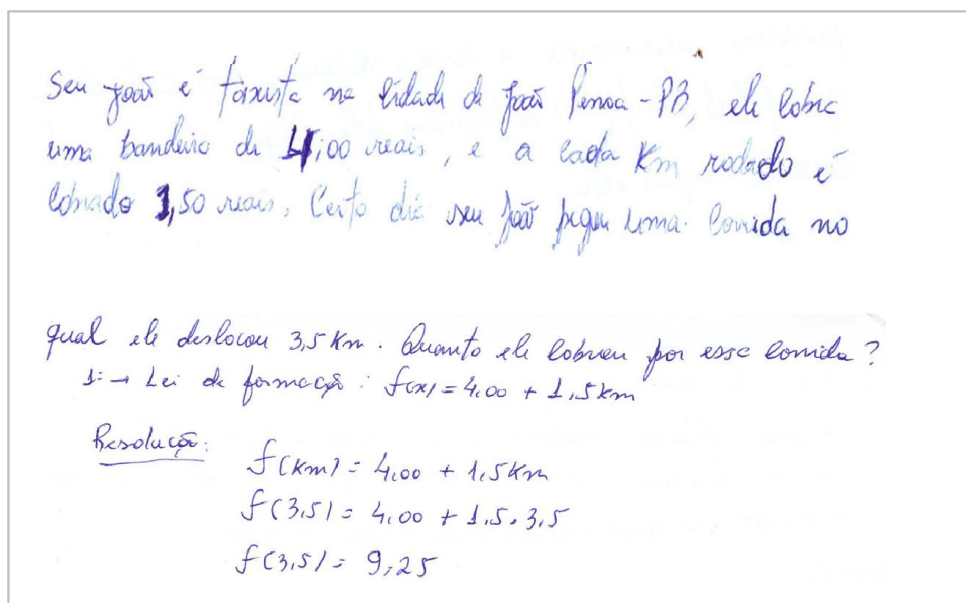 Seu João é taxista na cidade de João Pessoa-PB, ele cobra
uma bandeira de 4,00 reais, e a cada Km rodado é
cobrado 1,50 reais. Certo dia seu João pegou uma corrida no
qual ele deslocou 3,5 Km. Quanto ele cobrou por esse corrida?
1ª → Lei de formação: f(x) = 4,00 + 1,5km
Resolução:
f(Km) = 4,00 + 1,5Km
f(3,5) = 4,00 + 1,5.3,5
f(3,5) = 9,25